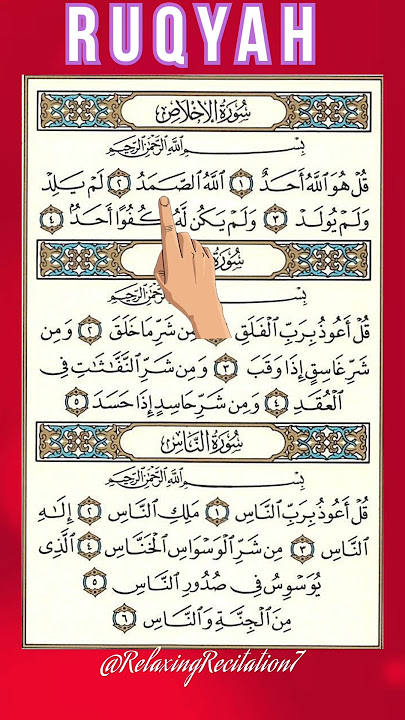 RUQYAH
سُورَةُ الإِخْلَاصِ
بِسْمِ ٱللَّهِ ٱلرَّحْمَٰنِ ٱلرَّحِيمِ
قُلْ هُوَ ٱللَّهُ أَحَدٌ ١ ٱللَّهُ ٱلصَّمَدُ ٢ لَمْ يَلِدْ
وَلَمْ يُولَدْ ٣ وَلَمْ يَكُن لَّهُۥ كُفُوًا أَحَدٌۢ ٤
سُورَةُ
بِسْمِ ٱللَّهِ ٱلرَّحْمَٰنِ ٱلرَّحِيمِ
قُلْ أَعُوذُ بِرَبِّ ٱلْفَلَقِ مِن شَرِّ مَا خَلَقَ ٢ وَمِن
شَرِّ غَاسِقٍ إِذَا وَقَبَ ٣ وَمِن شَرِّ ٱلنَّفَّٰثَٰتِ فِى
ٱلْعُقَدِ ٤ وَمِن شَرِّ حَاسِدٍ إِذَا حَسَدَ ٥
سُورَةُ النَّاسِ
بِسْمِ ٱللَّهِ ٱلرَّحْمَٰنِ ٱلرَّحِيمِ
قُلْ أَعُوذُ بِرَبِّ ٱلنَّاسِ ١ مَلِكِ ٱلنَّاسِ ٢ إِلَٰهِ
ٱلنَّاسِ ٣ مِن شَرِّ ٱلْوَسْوَاسِ ٱلْخَنَّاسِ ٤ ٱلَّذِى
يُوَسْوِسُ فِى صُدُورِ ٱلنَّاسِ ٥
مِنَ ٱلْجِنَّةِ وَٱلنَّاسِ ٦
@RelaxingRecitation7